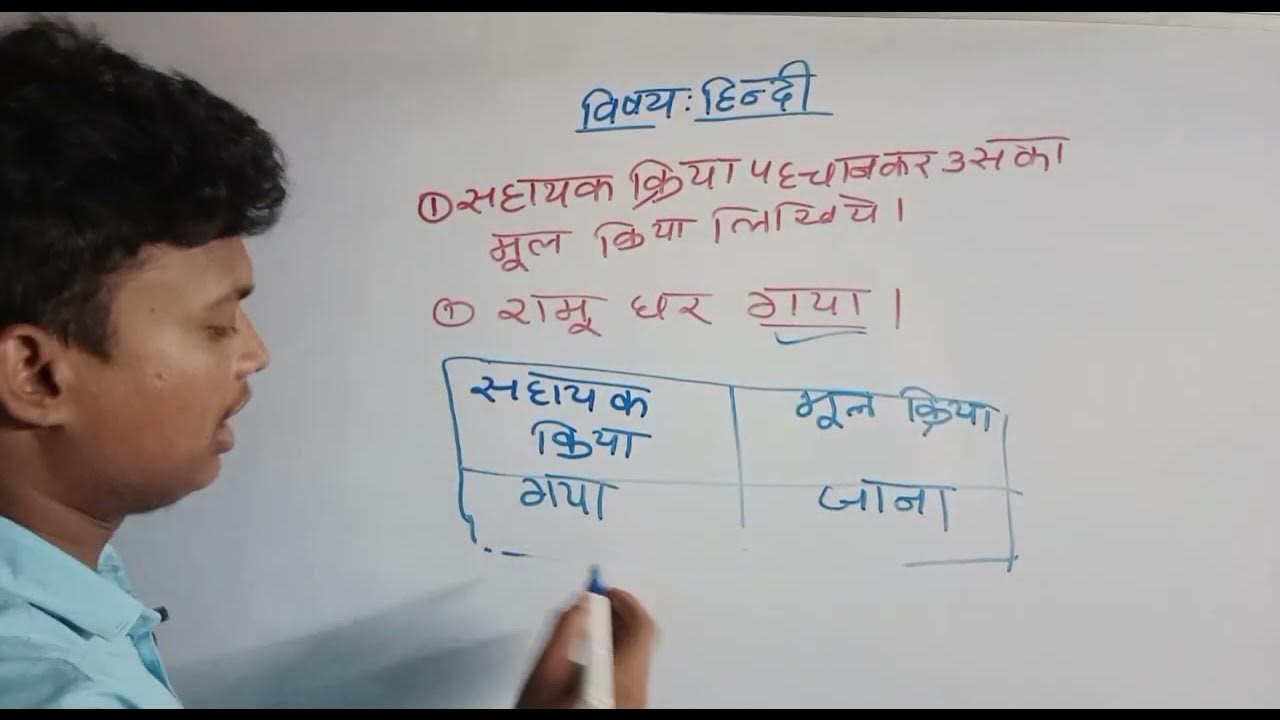 विषय : हिन्दी
① सहायक क्रिया पहचानकर उसका
मूल क्रिया लिखिये।
① रामू घर गया।
सहायक क्रिया
मूल क्रिया
गया
जाना